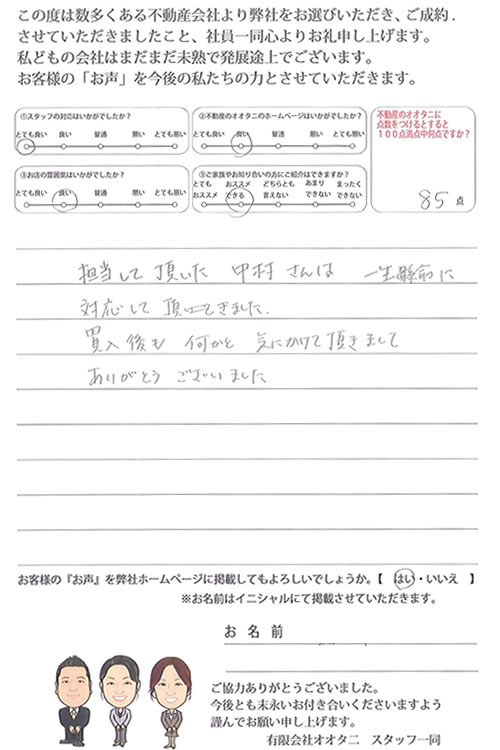 この度は数多くある不動産会社より弊社をお選びいただき、ご成約.
させていただきましたこと、社員一同心よりお礼申し上げます。
私どもの会社はまだまだ未熟で発展途上でございます。
お客様の「お声」を今後の私たちの力とさせていただきます。
①スタッフの対応はいかがでしたか?
とても良い 良い 普通 悪い とても悪い
②不動産のオオタニのホームページはいかがでしたか?
とても良い 良い 普通 悪い とても悪い
不動産のオオタニに
点数をつけるとすると
100点満点中何点ですか?
85 点
③お店の雰囲気はいかがでしたか?
とても良い 良い 普通 悪い とても悪い
⑤ご家族やお知り合いの方にご紹介はできますか?
とても おススメ どちらとも あまり まったく
おススメ できる 言えない できない できない
担当して頂いた 中村さんは 一生懸命に
対応して 頂けてきました.
買入後も 何かと 気にかけて頂きまして
ありがとう ございました
お客様の『お声』を弊社ホームページに掲載してもよろしいでしょうか。【 はい・いいえ 】
※お名前はイニシャルにて掲載させていただきます。
お 名 前
ご協力ありがとうございました。
今後とも末永いお付き合いくださいますよう
謹んでお願い申し上げます。
有限会社オオタニ スタッフ一同